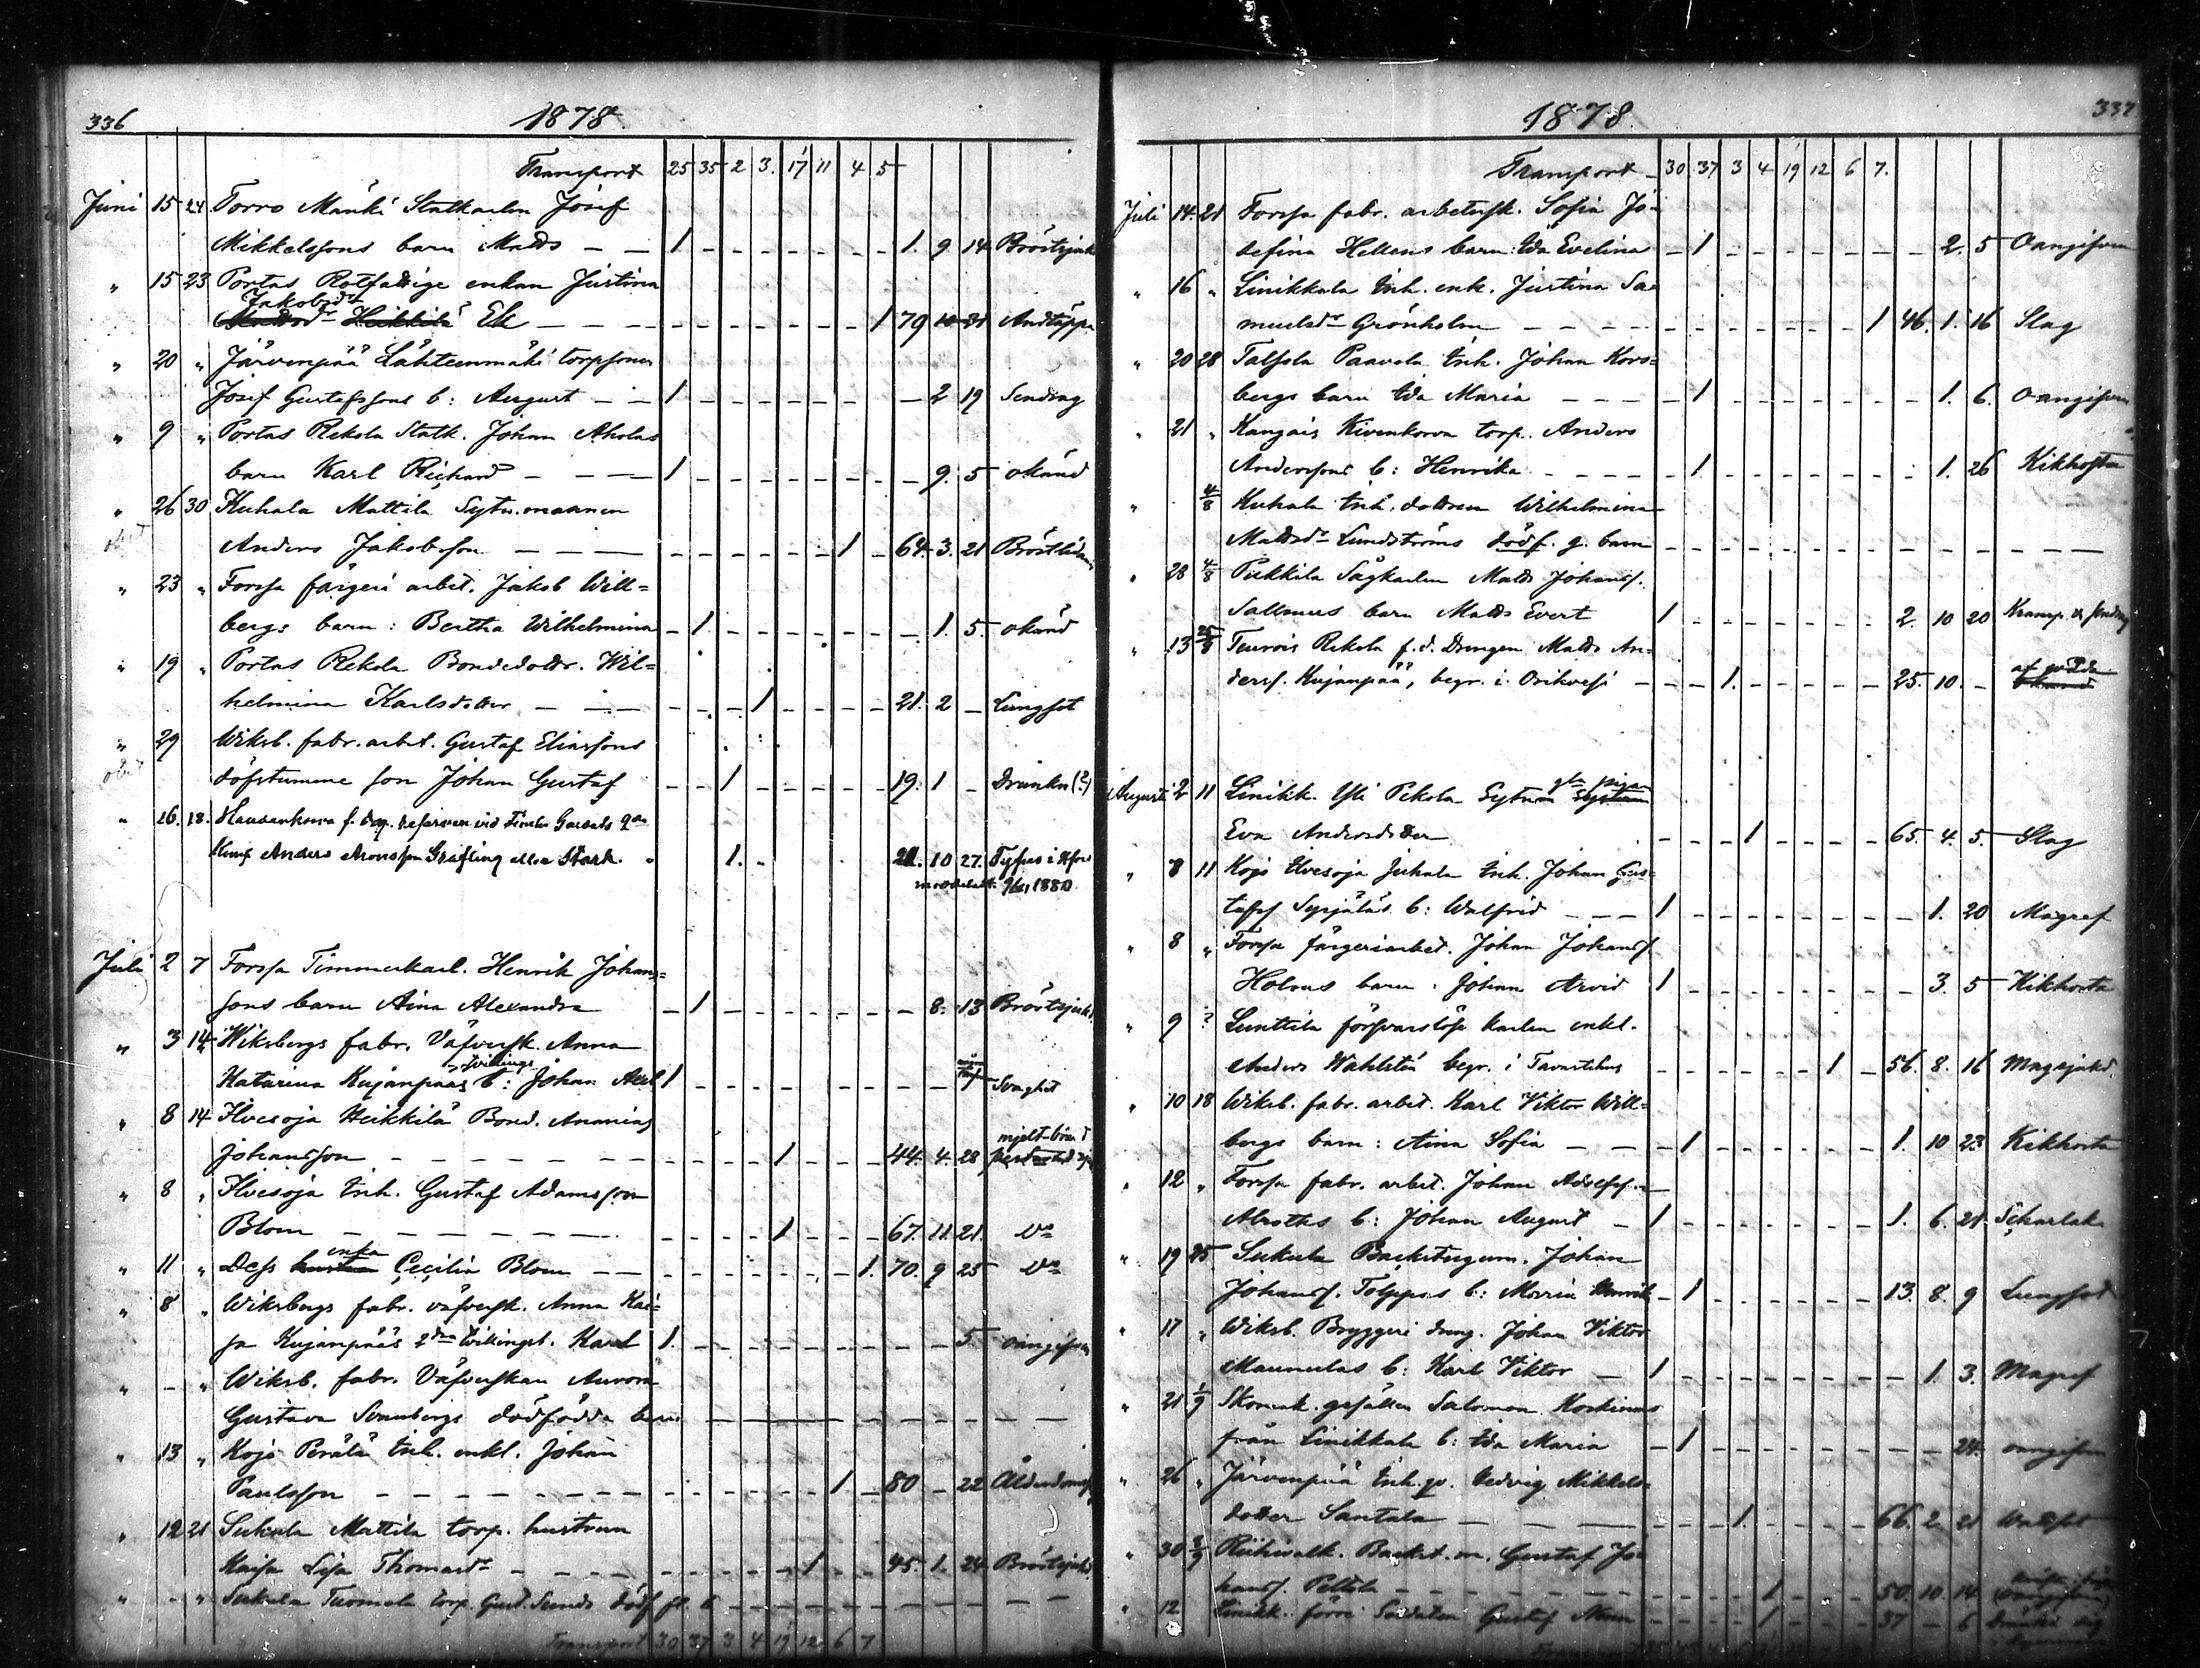 336
1878
Transport 25 35 2 3. 17 11 4 5
Juni 15 24 Torro Mänki Statkarlen Josef
Mikkelssons barn Matts — — 1 1. 9 14 Bröstsjukd
" 15 23 Portas Rotfattige enkan Justina
Jakobsdr
Heikkilä Ek — — — 1 79 10 21 Andtäppa
" 20 " Järvenpää Lähteenmäki torpsonen
Josef Gustafssons b: August — — 1 — 2 19 Sendrag
" 9 " Portas Rekola Statk. Johan Aholas
barn Karl Richard — — — 1 9. 5 okänd
" 26 30 Kuhala Mattila Sytn.mannen
Anders Jakobsson — — — 1 64 3. 21 Bröstlidan
" 23 " Forssa färgeri arbet. Jakob Will=
bergs barn: Bertha Wilhelmina — 1 1. 5. okänd
" 19 " Portas Rekola Bondedottr. Wil=
helmina Karlsdotter — — — 1 21. 2 — Lungsot
" 29 Wiksb. fabr. arbet. Gustaf Eliassons
döfstumme son Johan Gustaf — 1 19. 1 — Drunkn (?)
" 16. 18. f. d. reserven vid Finska Gardets
Anders Aronsson Gräfling eller Stark. 1. 21. 10 27. Typus i Hfors
1880
Juli 2 7 Forssa Timmerkarl. Henrik Johans=
sons barn Aina Alexandra — 1 8. 13 Bröstsjukd.
" 3 14 Wiksbergs fabr. Väfversk. Anna
tvillings
Katarina Kujanpääs b: Johan Axel 1 Svaghet
" 8 14 Ilvesoja Heikkilä Bond. Ananias
mjelt-brand
Johansson — — — 1 44. 4. 28
" 8 " Ilvesoja Inh. Gustaf Adamsson
Blom — — — 1 67. 11. 21. Do
enka
" 11 " Dess hustru Cecilia Blom — — 1. 70. 9 25 Do
" 8 " Wiksbergs fabr. väfversk. Anna Kai=
sa Kujanpääs 2dra tvillingsb. Karl 1. 5. oangifven
" — " Wiksb. fabr. Väfverskan Aurora
Gustava Sennbergs dödfödda barn — — —
" 13 " Kojo Perälä Inh. enkl. Johan
Paulsson — — — 1 80 — 22 Ålderdomsv
" 12 21 Sukula Mattila torp. hustrun
Kaisa Lisa Thomasdr — — — 1 45. 1. 24 Bröstsjukd
" - " Sukula Tuomola torp. Gust. Sunds dödf fl. b — — —
Transport 30 37 3 4 19 12 6 7
337
1878.
Transport — 30. 37 3 4 19 12 6 7.
Juli 14. 21 Forssa fabr. arbetersk. Sofia Jo=
sefina Hellens barn: Ida Evelina — 1 2. 5 Oangifven
" 16 " Linikkala Inh. enk. Justina Sa=
muelsdr Grönholm — — — 1 46. 1. 16 Slag
" 20 28 Talsola Paavola Inh. Johan Kors=
bergs barn Ida Maria — — — 1 1. 6. Oangifven
" 21 " Kangais Kivenkorva torp. Anders
Anderssons b: Henrika — — — 1 1. 26 Kikhosta
" 4/8 Kuhala Inh. dottren Wilhelmina
Mattsdr Lundströms dödf. g. barn — — —
" 28 4/8 Pukkila Sågkarlen Matts Johans.
Sallmers barn Matts Evert 1 2. 10 20 Kramp
" 13 25/8 Teurois Rekola f. d. Drengen Matts An=
derss. Kujanpää, begr. i Orihvesi — 1. 25. 10. —
Augusti 2 11 Linikk. Yli Pekola Sytn pigan
Eva Andersdotter — 1 65. 4. 5. Slag
" 8 11 Kojo Ilvesoja Juhala Inh. Johan Gus=
tafss Syrjäläs b: Walfrid — — — 1 1. 20 Magref
" 8 " Forssa färgeriarbet. Johan Johanss
Holms barn: Johan Arvid 1 3. 5 Kikhosta
" 9 ? Lunttila försvarslöse karlen enkl.
Anders Wahlstén begr. i Tavastehus — 1 56. 8. 16 Magsjukd.
" 10 18 Wiksb. fabr. arbet. Karl Viktor Will=
bergs barn: Aina Sofia — — 1 1. 10 23 Kikhosta
" 12 " Forssa fabr. arbet. Johan Adolfss.
Alroths b: Johan August — 1 1. 6. 21 Scharlak.
" 19 25 Sukula Backstugum. Johan
Johanss. Tolppas b: Maria — 1 13. 8. 9 Lungsot
" 17 " Wiksb. Bryggeri dreng. Johan Viktor
Maunulas b: Karl Viktor — 1 1. 3. Magref
" 21 1/9 Skomak. gesällen Salomon Koskinens
från Linikkala b: Ida Maria — 1 24. oangifven
" 26 " Järvenpää Inh. qv. Hedvig Mikkels=
dotter Santala — — — 1. 66. 2. 21
" 30 8/9 Riihivalk. Backst. m. Gustaf Jo=
hanss. Peltola — — — 1 50. 10 14 (oangifven)
" 12 Linikk. förre Soldaten Gustaf 1 37 — 6 dränkt sig